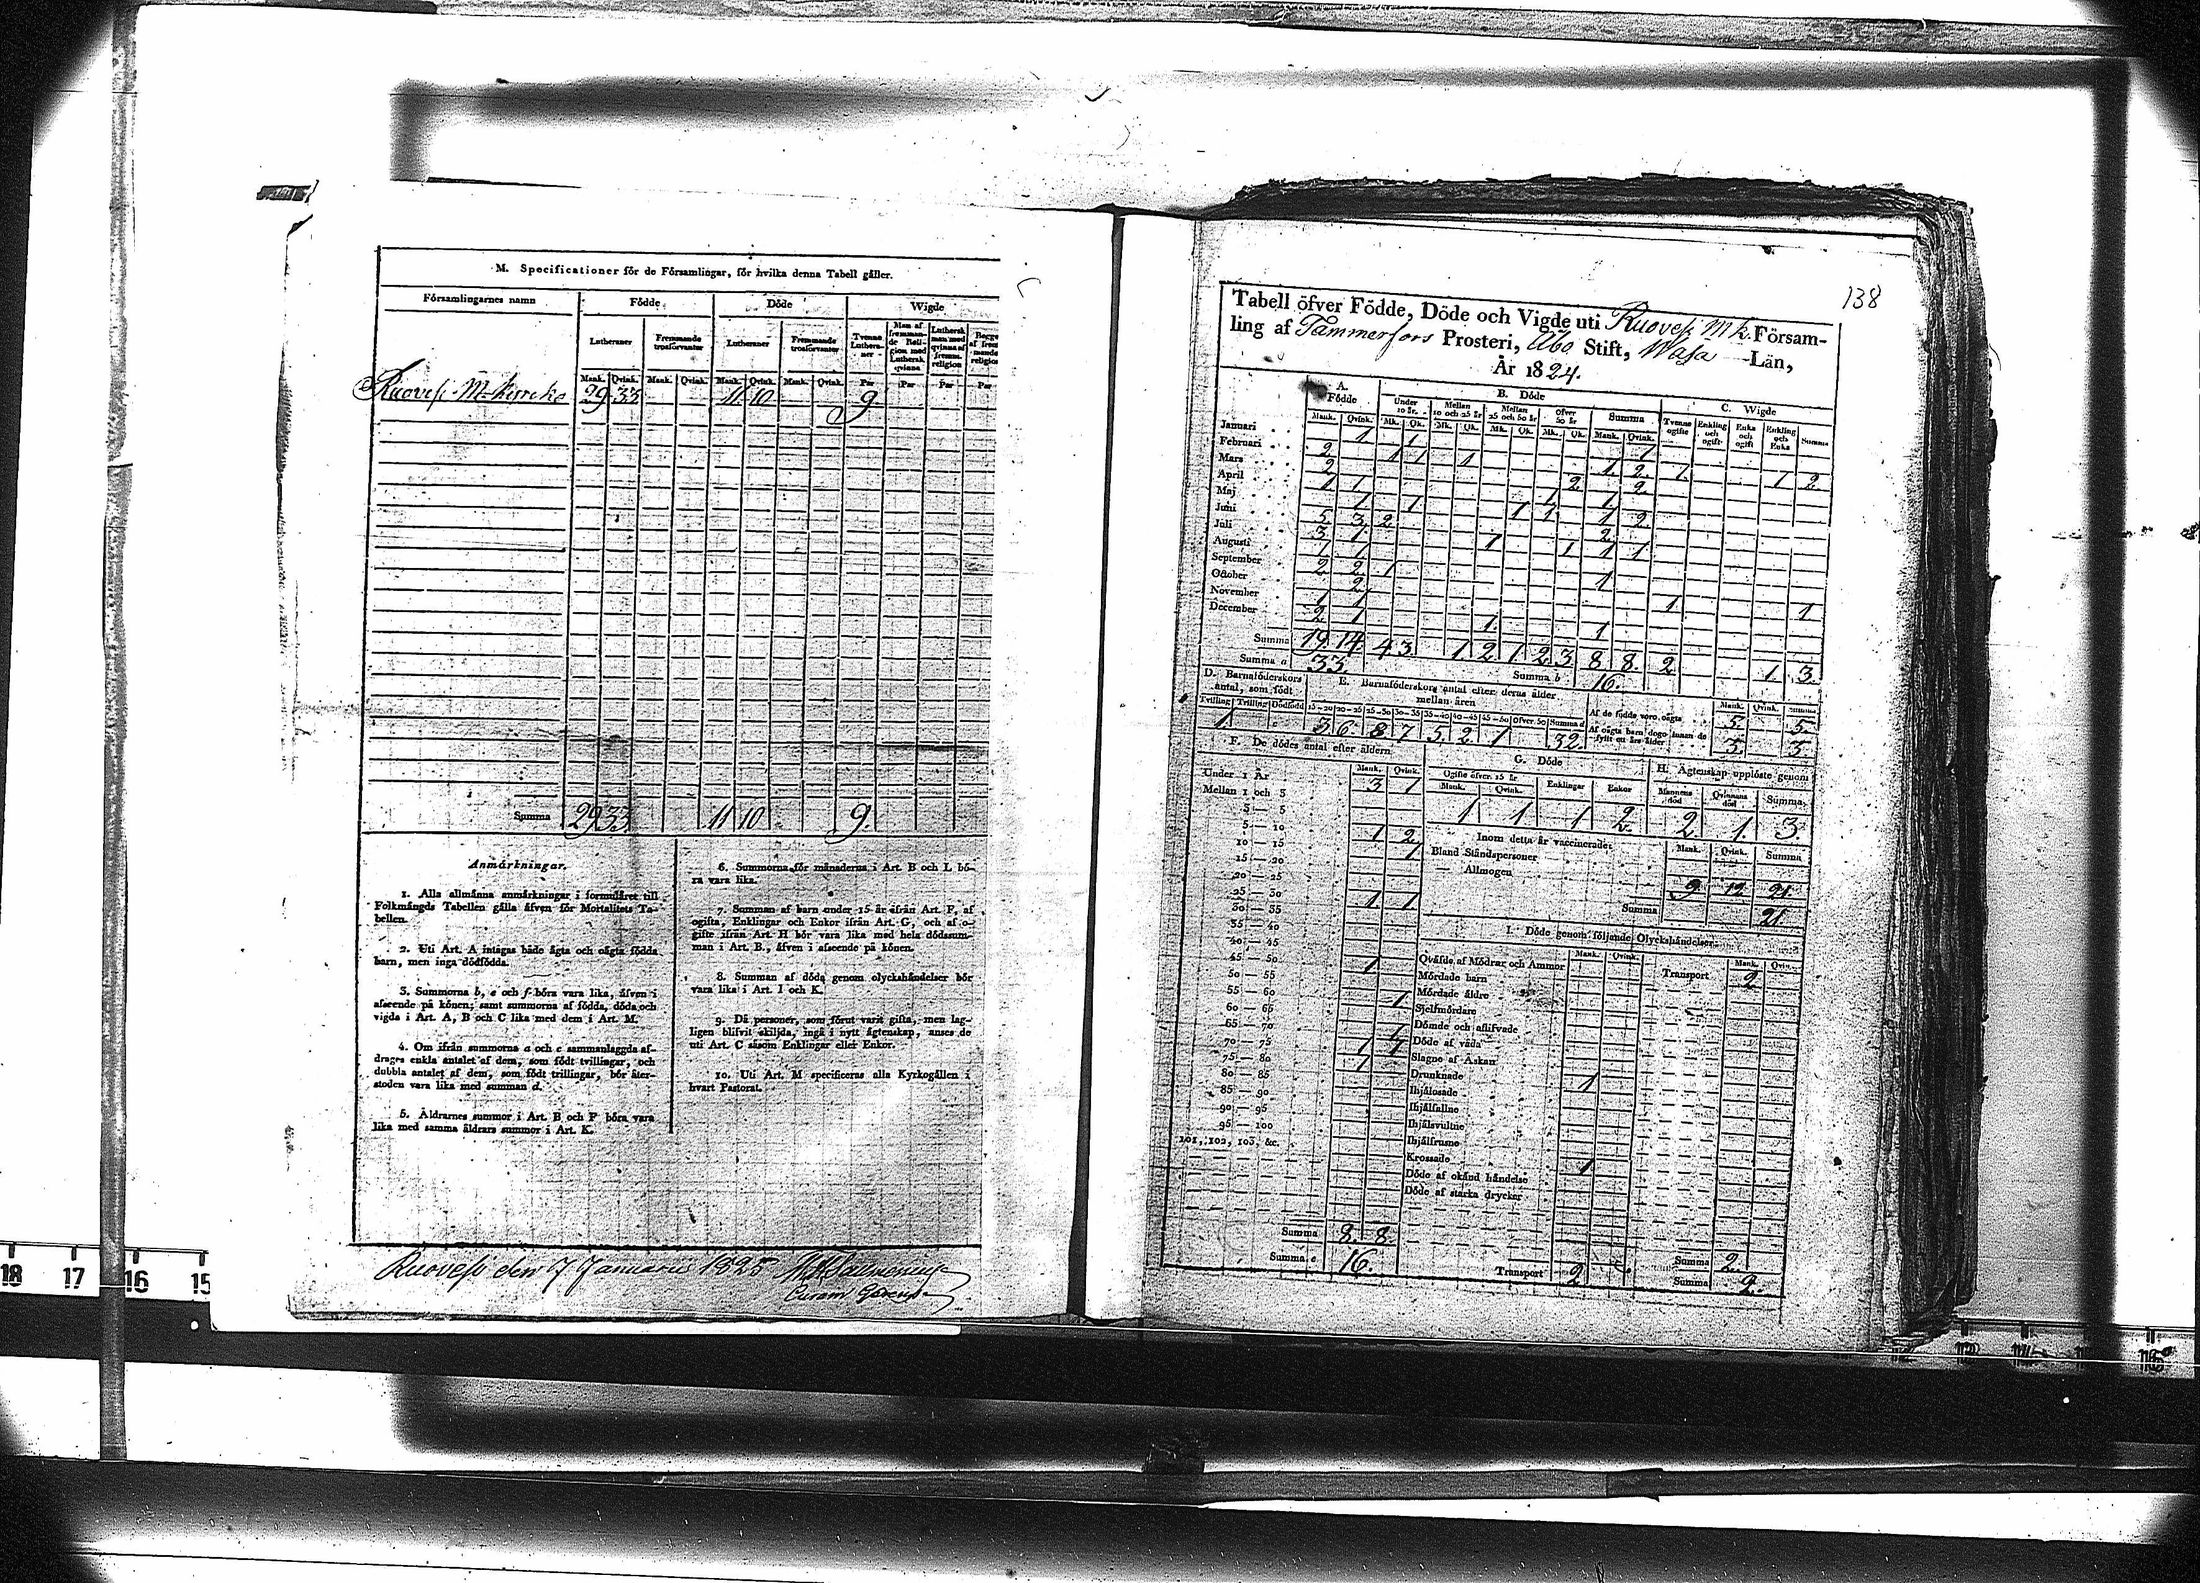 M. Specificationer för de Församlingar, för hvilka denna Tabell gäller.
Församlingarnes namn
Födde
Döde
Wigde
Lutheraner
Fremmande trosförvanter
Lutheraner
Fremmande trosförvanter
Tvenne Lutheraner
Man af fremmande Religion med Luthersk qvinna
Luthersk man med qvinna af fremm. religion
Mank. Qvink. Mank. Qvink. Mank. Qvink. Mank. Qvink. Par Par Par Par
Ruovesi M-kirreko 29 33 11 10 9.
Summa 29 33 11 10 9.
Anmärkningar.
1. Alla allmänna anmärkningar i formuläret till
Folkmängds Tabellen gälla äfven för Mortalitets Ta-
bellen.
2. Uti Art. A intagas både ägta och oägta födda
barn, men inga dödfödda.
3. Summorna b, e och f böra vara lika, äfven i
afseende på könen; samt summorna af födda, döda och
vigda i Art. A, B och C lika med dem i Art. M.
4. Om ifrån summorna a och c sammanlaggda af-
drages enkla antalet af dem, som födt tvillingar, och
dubbla antalet af dem, som födt trillingar, bör åter-
stoden vara lika med summan d.
5. Åldrarnes summor i Art. B och F böra vara
lika med samma åldrars summor i Art. K.
6. Summorna för månaderna i Art. B och L bö-
ra vara lika.
7. Summan af barn under 15 år ifrån Art. F, af
ogifta, Enklingar och Enkor ifrån Art. G, och af o-
gifte ifrån Art. H bör vara lika med hela dödssum-
man i Art. B., äfven i afseende på könen.
8. Summan af döda genom olyckshändelser bör
vara lika i Art. I och K.
9. Då personer, som förut varit gifta, men lag-
ligen blifvit skiljda, ingå i nytt ägtenskap, anses de
uti Art. C såsom Enklingar eller Enkor.
10. Uti Art. M specificeras alla Kyrkogällen i
hvart Pastorat.
Ruovesi den 7 Januarii 1825
Curam Gerens
138
Tabell öfver Födde, Döde och Vigde uti Ruovesi Mk. Försam-
ling af Tammerfors Prosteri, Åbo Stift, Wasa Län,
År 1824.
A. Födde
B. Döde
C. Wigde
Under 10 år.
Mellan 10 och 25 år
Mellan 25 och 50 år
Öfver 50 år
Summa
Tvenne ogifte
Enkling och ogift
Enka och ogift
Enkling och Enka
Summa
Mank. Qvink. Mk. Qk. Mk. Qk. Mk. Qk. Mk. Qk. Mank. Qvink.
Januari 1 1 1
Februari 2 1 1 1 1 2 1. 1 2
Mars 2 2 2
April 1 1 1 1
Maj 1 1 1 1 1 2
Juni 5 3 2 2
Juli 3 1 1 1 1 1
Augusti 1 1
September 2 2 1 1
October 2
November 1 1 1 1
December 2 1 1 1
Summa 19 14 4 3 1 2 1 2 3 8 8 2 1 3
Summa a 33 Summa b 16.
D. Barnaföderskors antal, som födt
E. Barnaföderskors antal efter deras ålder mellan åren
Tvilling Trilling Dödfödd 15-20 20-25 25-30 30-35 35-40 40-45 45-50 Öfver 50 Summa d
1 3 6 8 7 5 2 1 32
Mank. Qvink. Summa
Af de födde voro oägta 5. 5.
Af oägta barn dogo innan de fyllt ett års ålder 3. 3.
F. De dödes antal efter åldern
Mank. Qvink.
Under 1 År 3 1
Mellan 1 och 3
3 — 5
5 — 10 1 2
10 — 15 1
15 — 20
20 — 25
25 — 30 1 1
30 — 35
35 — 40
40 — 45
45 — 50 1
50 — 55
55 — 60 1
60 — 65
65 — 70 1
70 — 75 1 1
75 — 80 1
80 — 85
85 — 90
90 — 95
95 — 100
101, 102, 103, &c.
Summa 8 8
Summa e 16.
G. Döde
Ogifte öfver 15 år
Mank. Qvink. Enklingar Enkor
1 1 1 2
H. Ägtenskap upplöste genom
Mannens död Qvinnans död Summa
2 1. 3
Inom detta år vaccinerade: Mank. Qvink. Summa
Bland Ståndspersoner
— Allmogen 9 12 21
Summa 21
I. Döde genom följande Olyckshändelser.
Mank. Qvink. Mank. Qvink.
Qväfde af Mödrar och Ammor Transport 2
Mördade barn
Mördade äldre
Sjelfmördare
Dömde och aflifvade
Döde af våda
Slagne af Åskan
Drunknade 1
Ihjälosade
Ihjälfallne
Ihjälsvultne
Ihjälfrusne
Krossade 1
Döde af okänd händelse
Döde af starka drycker
Transport 2
Summa 2.
Summa 2.
18 17 16 15